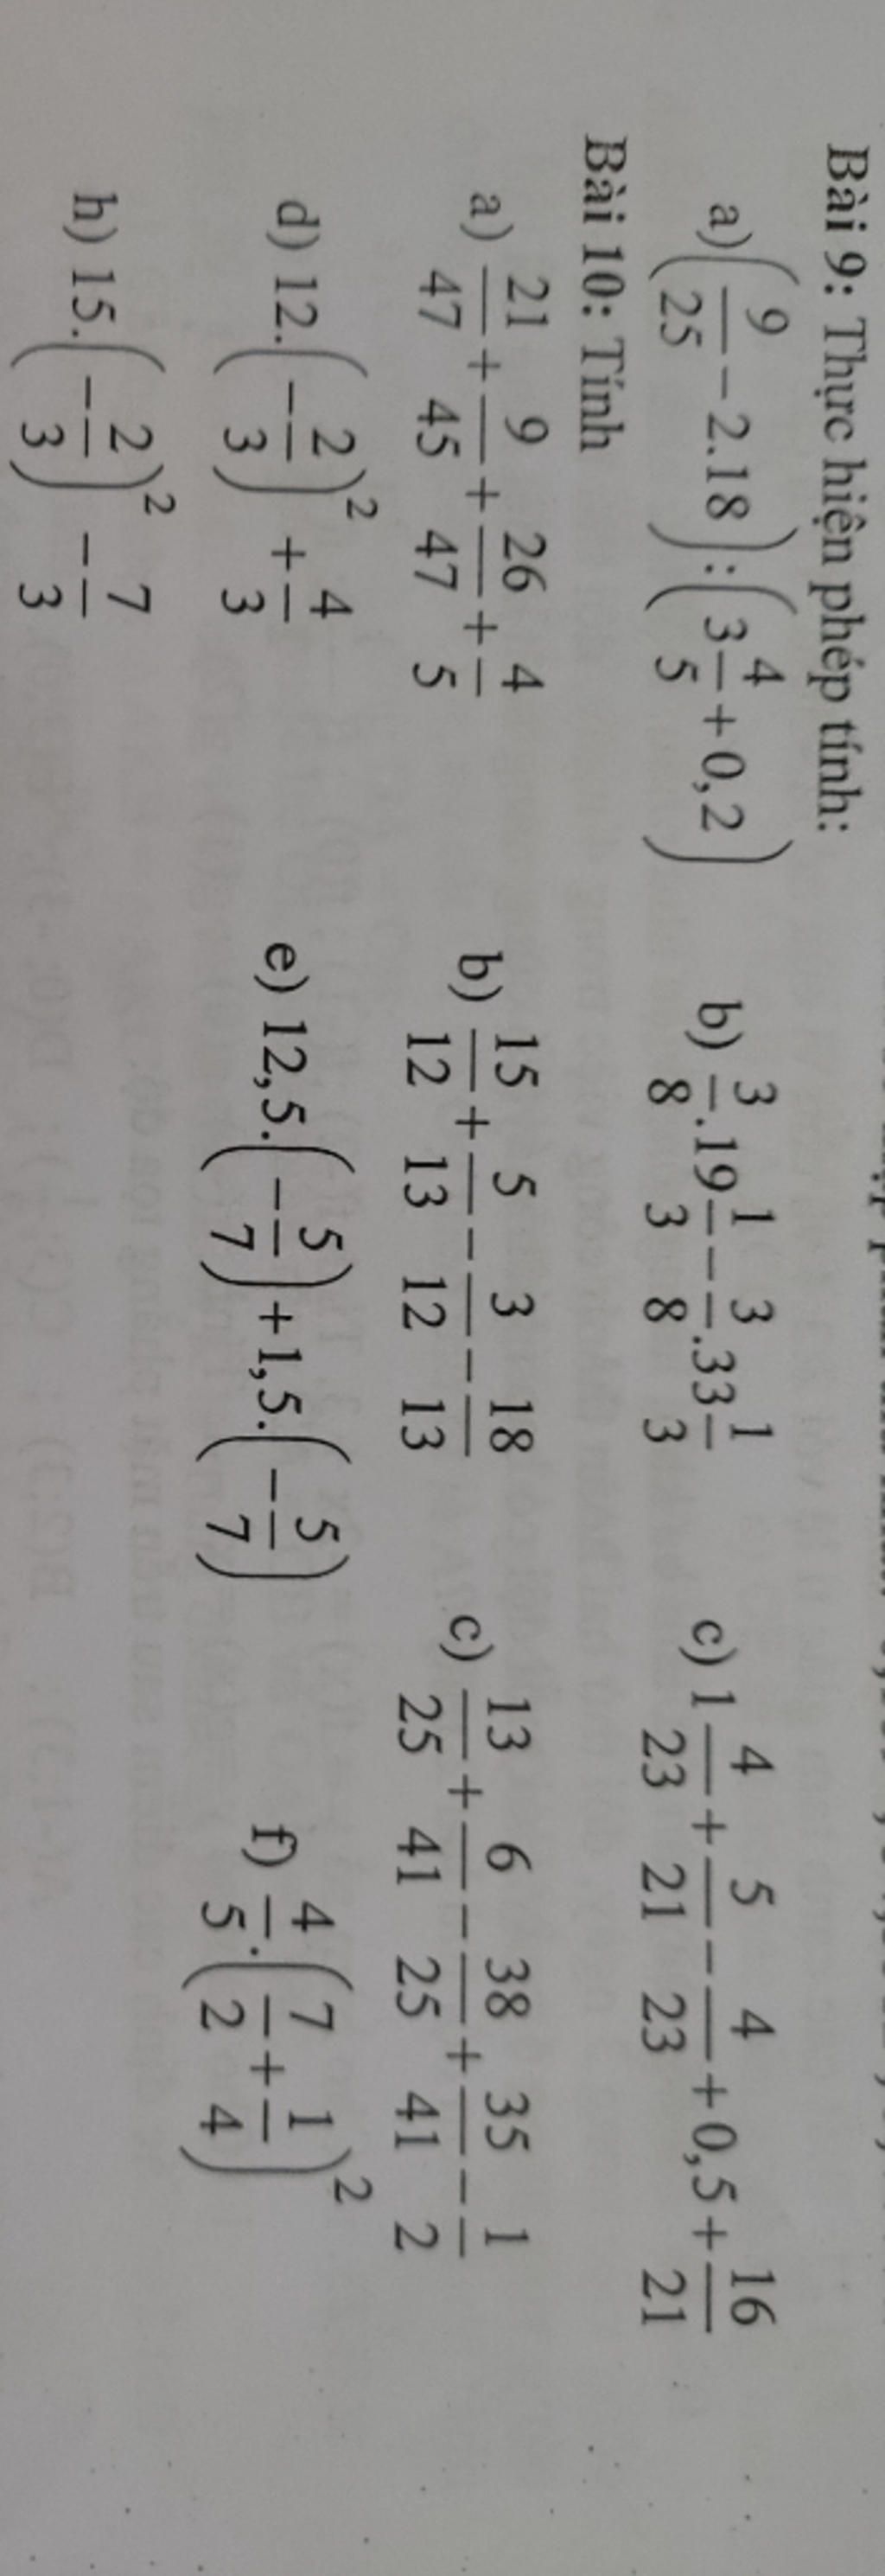 Bài 9: Thực hiện phép tính:
a) (9/25 − 2.18) : (3 4/5 + 0,2) b) 3/8 . 19 1/3 − 3/8 . 33 1/3 c) 1 4/23 + 5/21 − 4/23 + 0,5 + 16/21
Bài 10: Tính
a) 21/47 + 9/45 + 26/47 + 4/5 b) 15/12 + 5/13 − 3/12 − 18/13 c) 13/25 + 6/41 − 38/25 + 35/41 − 1/2
d) 12.(−2/3)² + 4/3 e) 12,5.(−5/7) + 1,5.(−5/7) f) 4/5 . (7/2 + 1/4)²
h) 15.(−2/3)² − 7/3